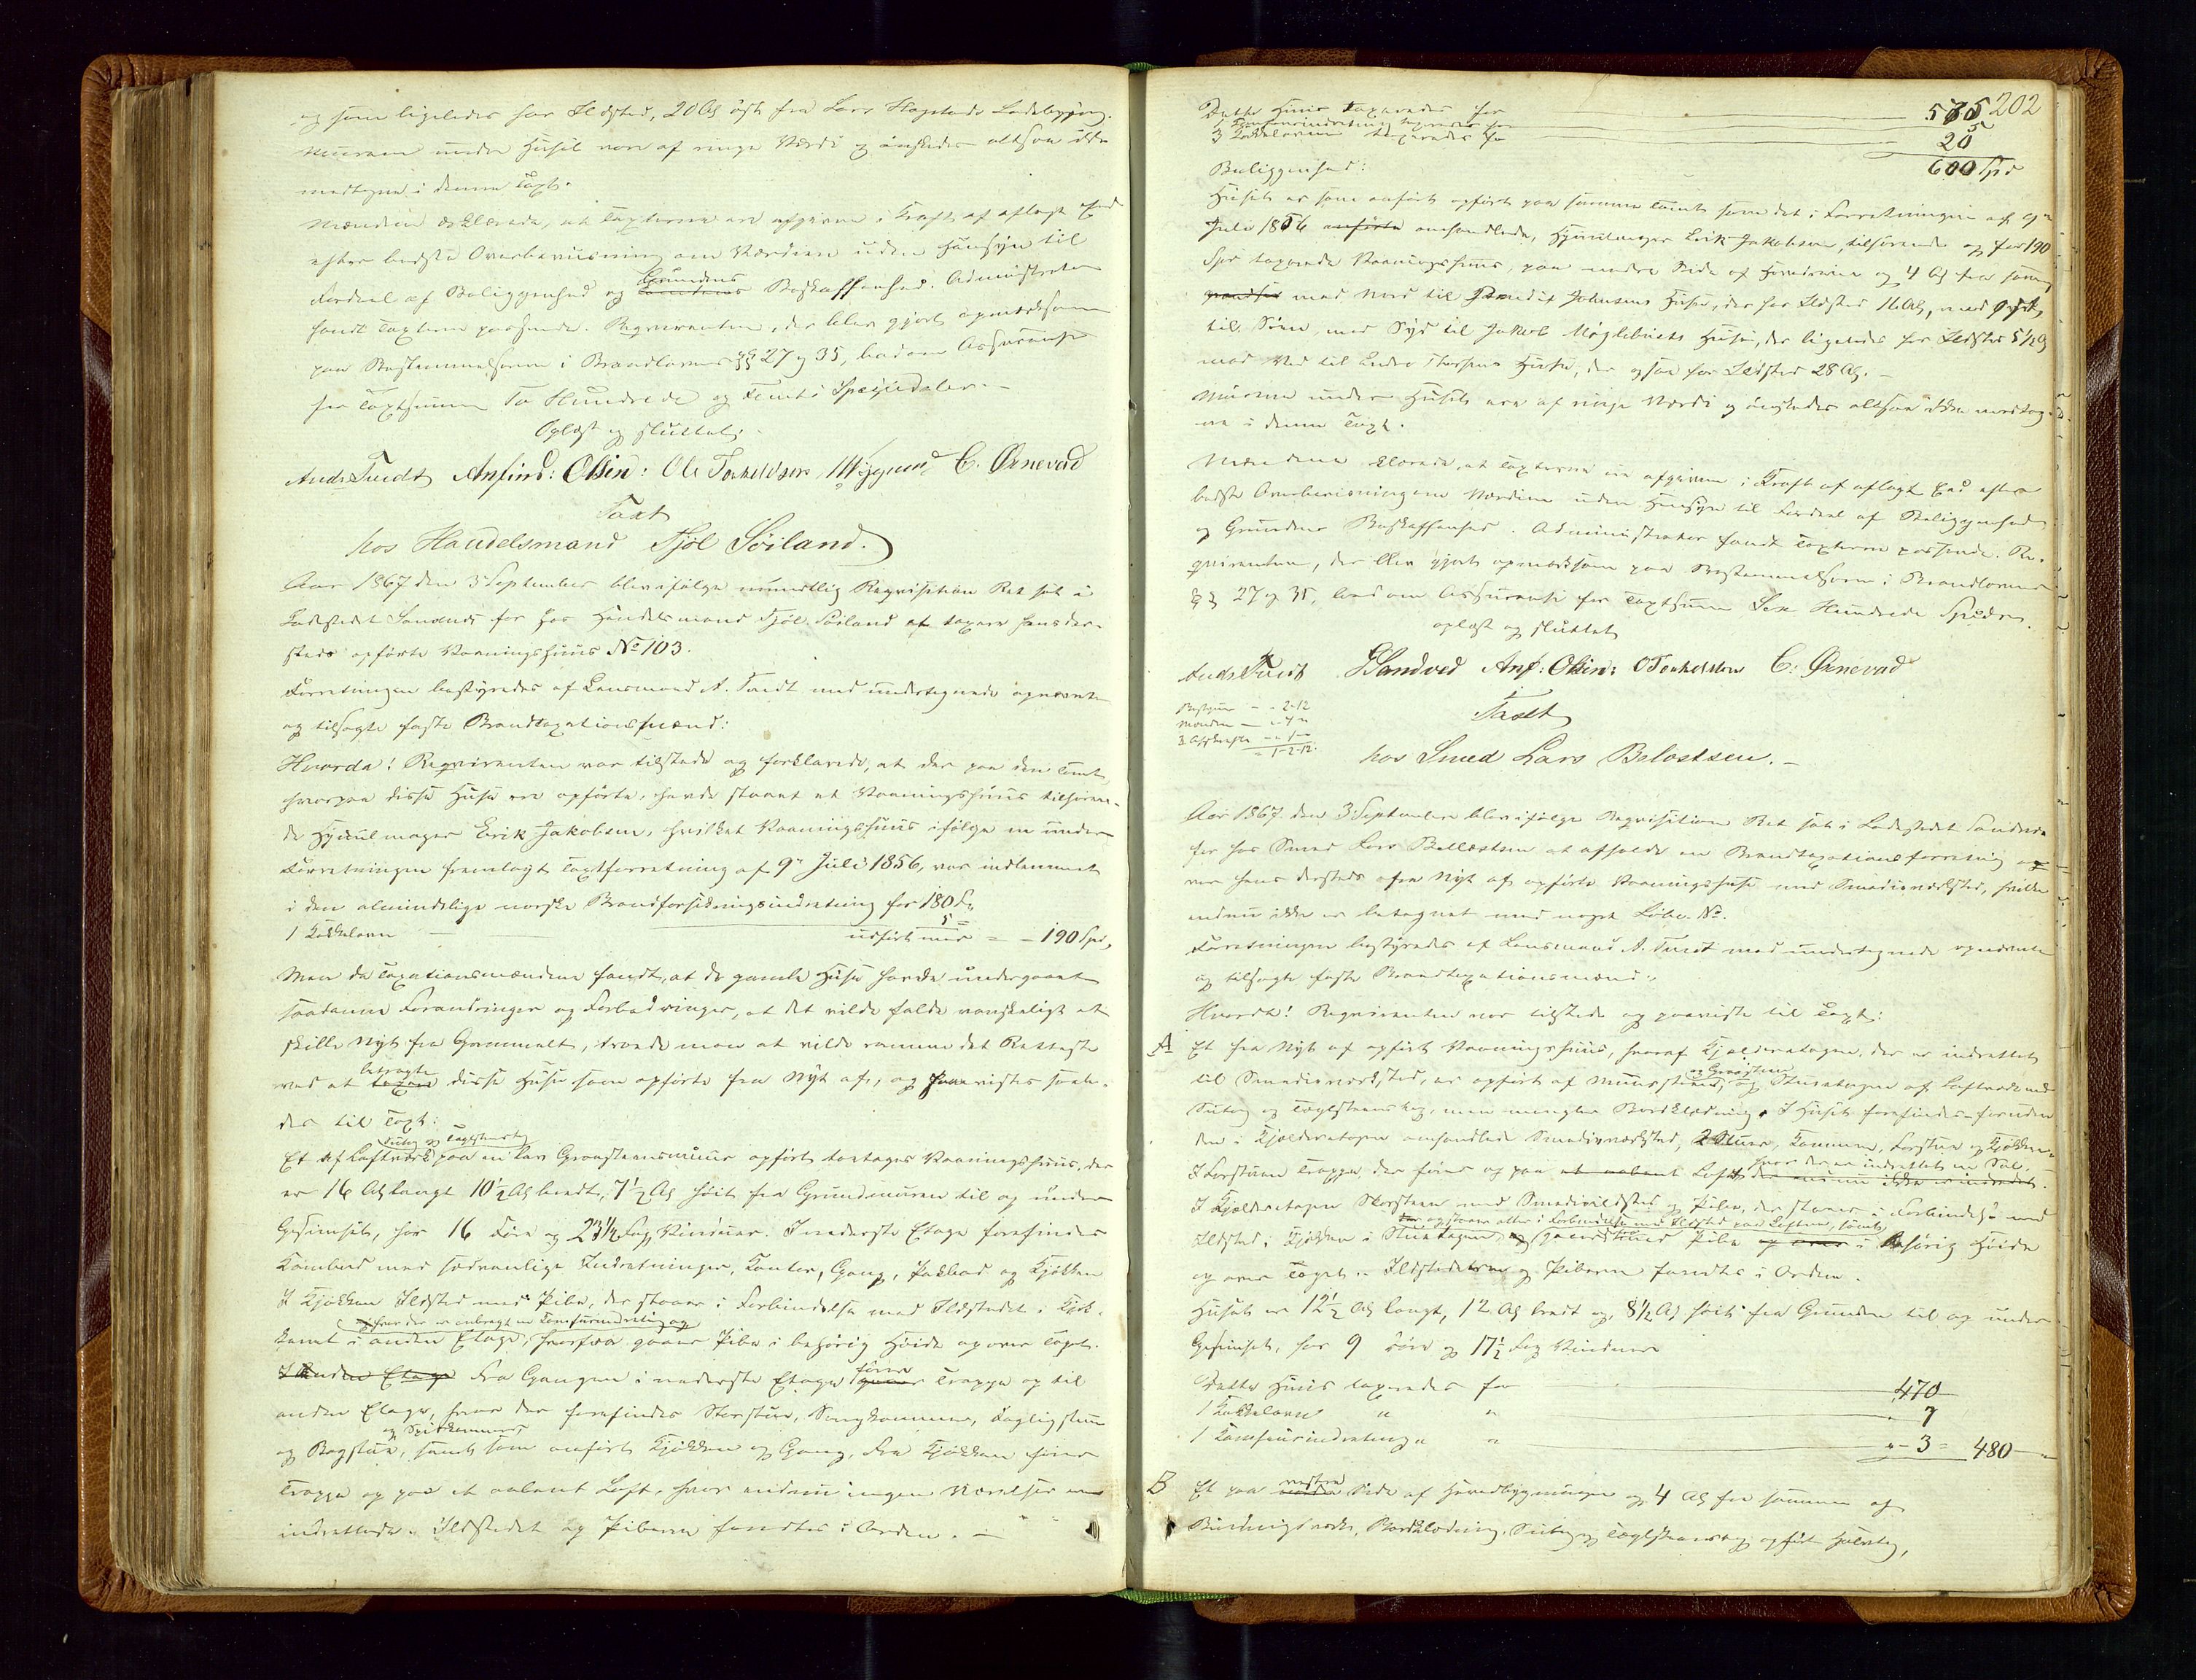 og som ligeledes har Ildsted, 20 Al øst fra Lars Hogstads Ladebygning.
Murene under Huset vare af ringe Værdi og ønskedes altsaa ikke
medtagne i denne Taxt.
Mændene erklærede, at Taxterne ere afgivne i Kraft af aflagt Eed
efter bedste Overbeviisning om Værdien uden Hensyn til
Fordeel af Beliggenhed og Grundens Beskaffenhed. Administrator
fandt Taxterne passende. Reqvirenten, der blev gjort opmærksom
paa Bestemmelserne i Brandlovens §§ 27 og 35, bad om Assurance
for Taxtsummen To Hundrede og Femti Speciedaler.
Oplæst og sluttet.
Ands Tuedt Anfind: Olsin: Ole Torkeldsen C. Ørnevad
Taxt
hos Handelsmand Tjøl Søiland.
Aar 1867 den 3 September blev ifølge mundtlig Reqvisition Ret sat i
Ladestedet Sandnes for hos Handelsmand Tjøl Søiland at taxere hans der-
steds opførte Vaaningshuus No 103.
Forretningen bestyredes af Lensmand A. Tuedt med undertegnede opnævnte
og tilsagte faste Brandtaxationsmænd:
Hvorda! Reqvirenten var tilstede og forklarede, at der paa den Tomt,
hvorpaa disse Huse ere opførte, havde staaet et Vaaningshuus tilhøren-
de Hjulmager Erik Jakobsen, hvilket Vaaningshuus ifølge en under
Forretningen fremlagt Taxtforretning af 9de Juli 1856, var indlemmet
i den almindelige norske Brandforsikringsindretning for 180 Sp
1 Kakkelovn 5 =
190 Spd,
Men da Taxationsmændene fandt, at de gamle Huse havde undergaaet
saadanne Forandringer og Forbedringer, at det vilde falde vanskeligt at
skille Nyt fra Gammelt, troede man at vilde ramme det Retteste
ved at betragte disse Huse som opførte fra Nyt af, og paavistes saale-
des til Taxt:
Sutag og Taglsteentag
Et af Laftværk paa en lav Graasteensmuur opført toetages Vaaningshuus, der
er 16 Al langt 10½ Al bredt, 7½ Al høit fra Grundmuren til og under
Gesimset, har 16 Døre og 23½ Fag Vinduer. I nederste Etage forefindes
Krambod med sædvanlige Indretninger, Kontor, Gang, Pakbod og Kjøkken
I Kjøkken Ildsted med Pibe, der staaer i Forbindelse med Ildstedet i Kjøk-
hvor der er anbragt en Komfurindretning og
kenet i anden Etage, hvorfra gaaer Pibe i behørig Høide op over Taget.
I Anden Etage Fra Gangen i nederste Etage fører Trappe op til
anden Etage, hvor der forefindes Storstue, Sengkammer, Dagligstue
og Spiskammer
og Bagstue, samt som anført Kjøkken og Gang. Fra Kjøkken fører
Trappe op paa et aabent Loft, hvor endnu ingen Værelser ere
indrettede. Ildstedet og Piberne fandtes i Orden.
202
Dette Huus taxeredes for 575
1 Komfurindretning taxeredes for
3 Kakkelovne taxeredes for 25
600 Spd
Beliggenhed:
Huset er som anført opført paa samme Tomt som det i Forretningen af 9de
Juli 1856 anførte omhandlede, Hjulmager Erik Jakobsen tilhørende og for 190
Spd taxerede Vaaningshuus, paa nedre Side af Hovedveien og 4 Al fra samme
grændser mod Nord til Johnsens Huse, der har Ildsted 16 Al, mod Øst
til Søen, mod Syd til Jakob Møglebusts Huse, der ligeledes har Ildsted 5½ Al
mod Vest til Endre Thorsens Huse, der ogsaa har Ildsted 28 Al.
Murene under Huset ere af ringe Værdi og ønskedes altsaa ikke medtag-
ne i denne Taxt.
Mændene erklærede, at Taxterne ere afgivne i Kraft af aflagt Eed efter
bedste Overbeviisning om Værdien uden Hensyn til Fordeel af Beliggenhed
og Grundens Beskaffenhed. Administrator fandt Taxterne passende. Re-
qvirenten, der blev gjort opmærksom paa Bestemmelserne i Brandlovens
§§ 27 og 35, bad om Assurance for Taxtsummen Sex Hundrede Spdlr.
oplæst og sluttet
Ands Tuedt Sandved Anf: Olsin: O Torkeldsen C: Ørnevad
2-12
Mændene
1-2-12.
Taxt
hos Smed Lars Belastsen.
Aar 1867 den 3 September blev ifølge Reqvisition Ret sat i Ladestedet Sandnes
for hos Smed Lars Bellestsen at afholde en Brandtaxationsforretning
over hans dersteds fra Nyt af opførte Vaaningshuse med Smedieværksted, hvilke
endnu ikke er betegnet med noget Løbe No.
Forretningen bestyredes af Lensmand A. Tuedt med undertegnede opnævnte
og tilsagte faste Brandtaxationsmænd:
Hvorda! Reqvirenten var tilstede og paaviste til Taxt:
A Et fra Nyt af opført Vaaningshuus, hvoraf Kjælderetagen, der er indrettet
og Graasteen
til Smedieværksted, er opført af Muursteen, og Stueetagen af Laftværk med
Sutag og Taglsteenstag, men mangler Bordklædning. I Huset forefindes foruden
den i Kjælderetagen omhandlede Smedieværksted, 2 Stuer, Kammer, Forstue og Kjøkken.
hvor der er indrettet en Sal.
I Forstuen Trappe, der fører op paa et aabent Loft, der endnu ikke er indredet.
I Kjælderetagen Skorsteen med Smedieildsted og Pibe, der staaer i Forbindelse med
og staaer atter i Forbindelse med Ildsted paa Loftet, samt
Ildsted i Kjøkken i Stueetagen, Pibe op over i behørig Høide
op over Taget. Ildstederne og Piberne fandtes i Orden.
Huset er 12½ Al langt, 12 Al bredt og 8½ Al høit fra Grunden til og under
Gesimset, har 9 Døre og 17½ Fag Vinduer
Dette Huus taxeredes for 470
1 Kakkelovn " " 7
1 Komfurindretning " " 3 = 480
B Et paa vestre Side af Hovedbygningen og 4 Al fra samme af
Bindingsværk, Bordklædning, Sutag og Taglsteenstag opført Halvtag,